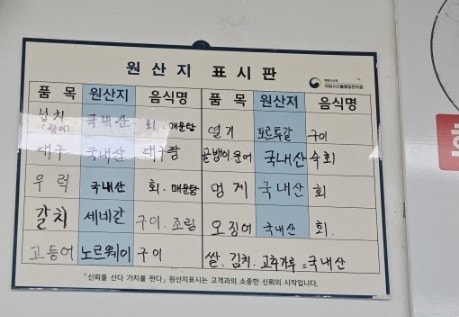 원산지 표시판
품 목 원산지 음식명 품 목 원산지 음식명
넙치 (광어) 국내산 회. 매운탕 열기 포르투갈 구이
대구 국내산 대구탕 골뱅이 문어 국내산 숙회
우럭 국내산 회. 매운탕 멍게 국내산 회
갈치 세네갈 구이. 조림 오징어 국내산 회.
고등어 노르웨이 구이 쌀. 김치. 고추가루 = 국내산
「신뢰를 산다 가치를 판다」 원산지표시는 고객과의 소중한 신뢰의 시작입니다.